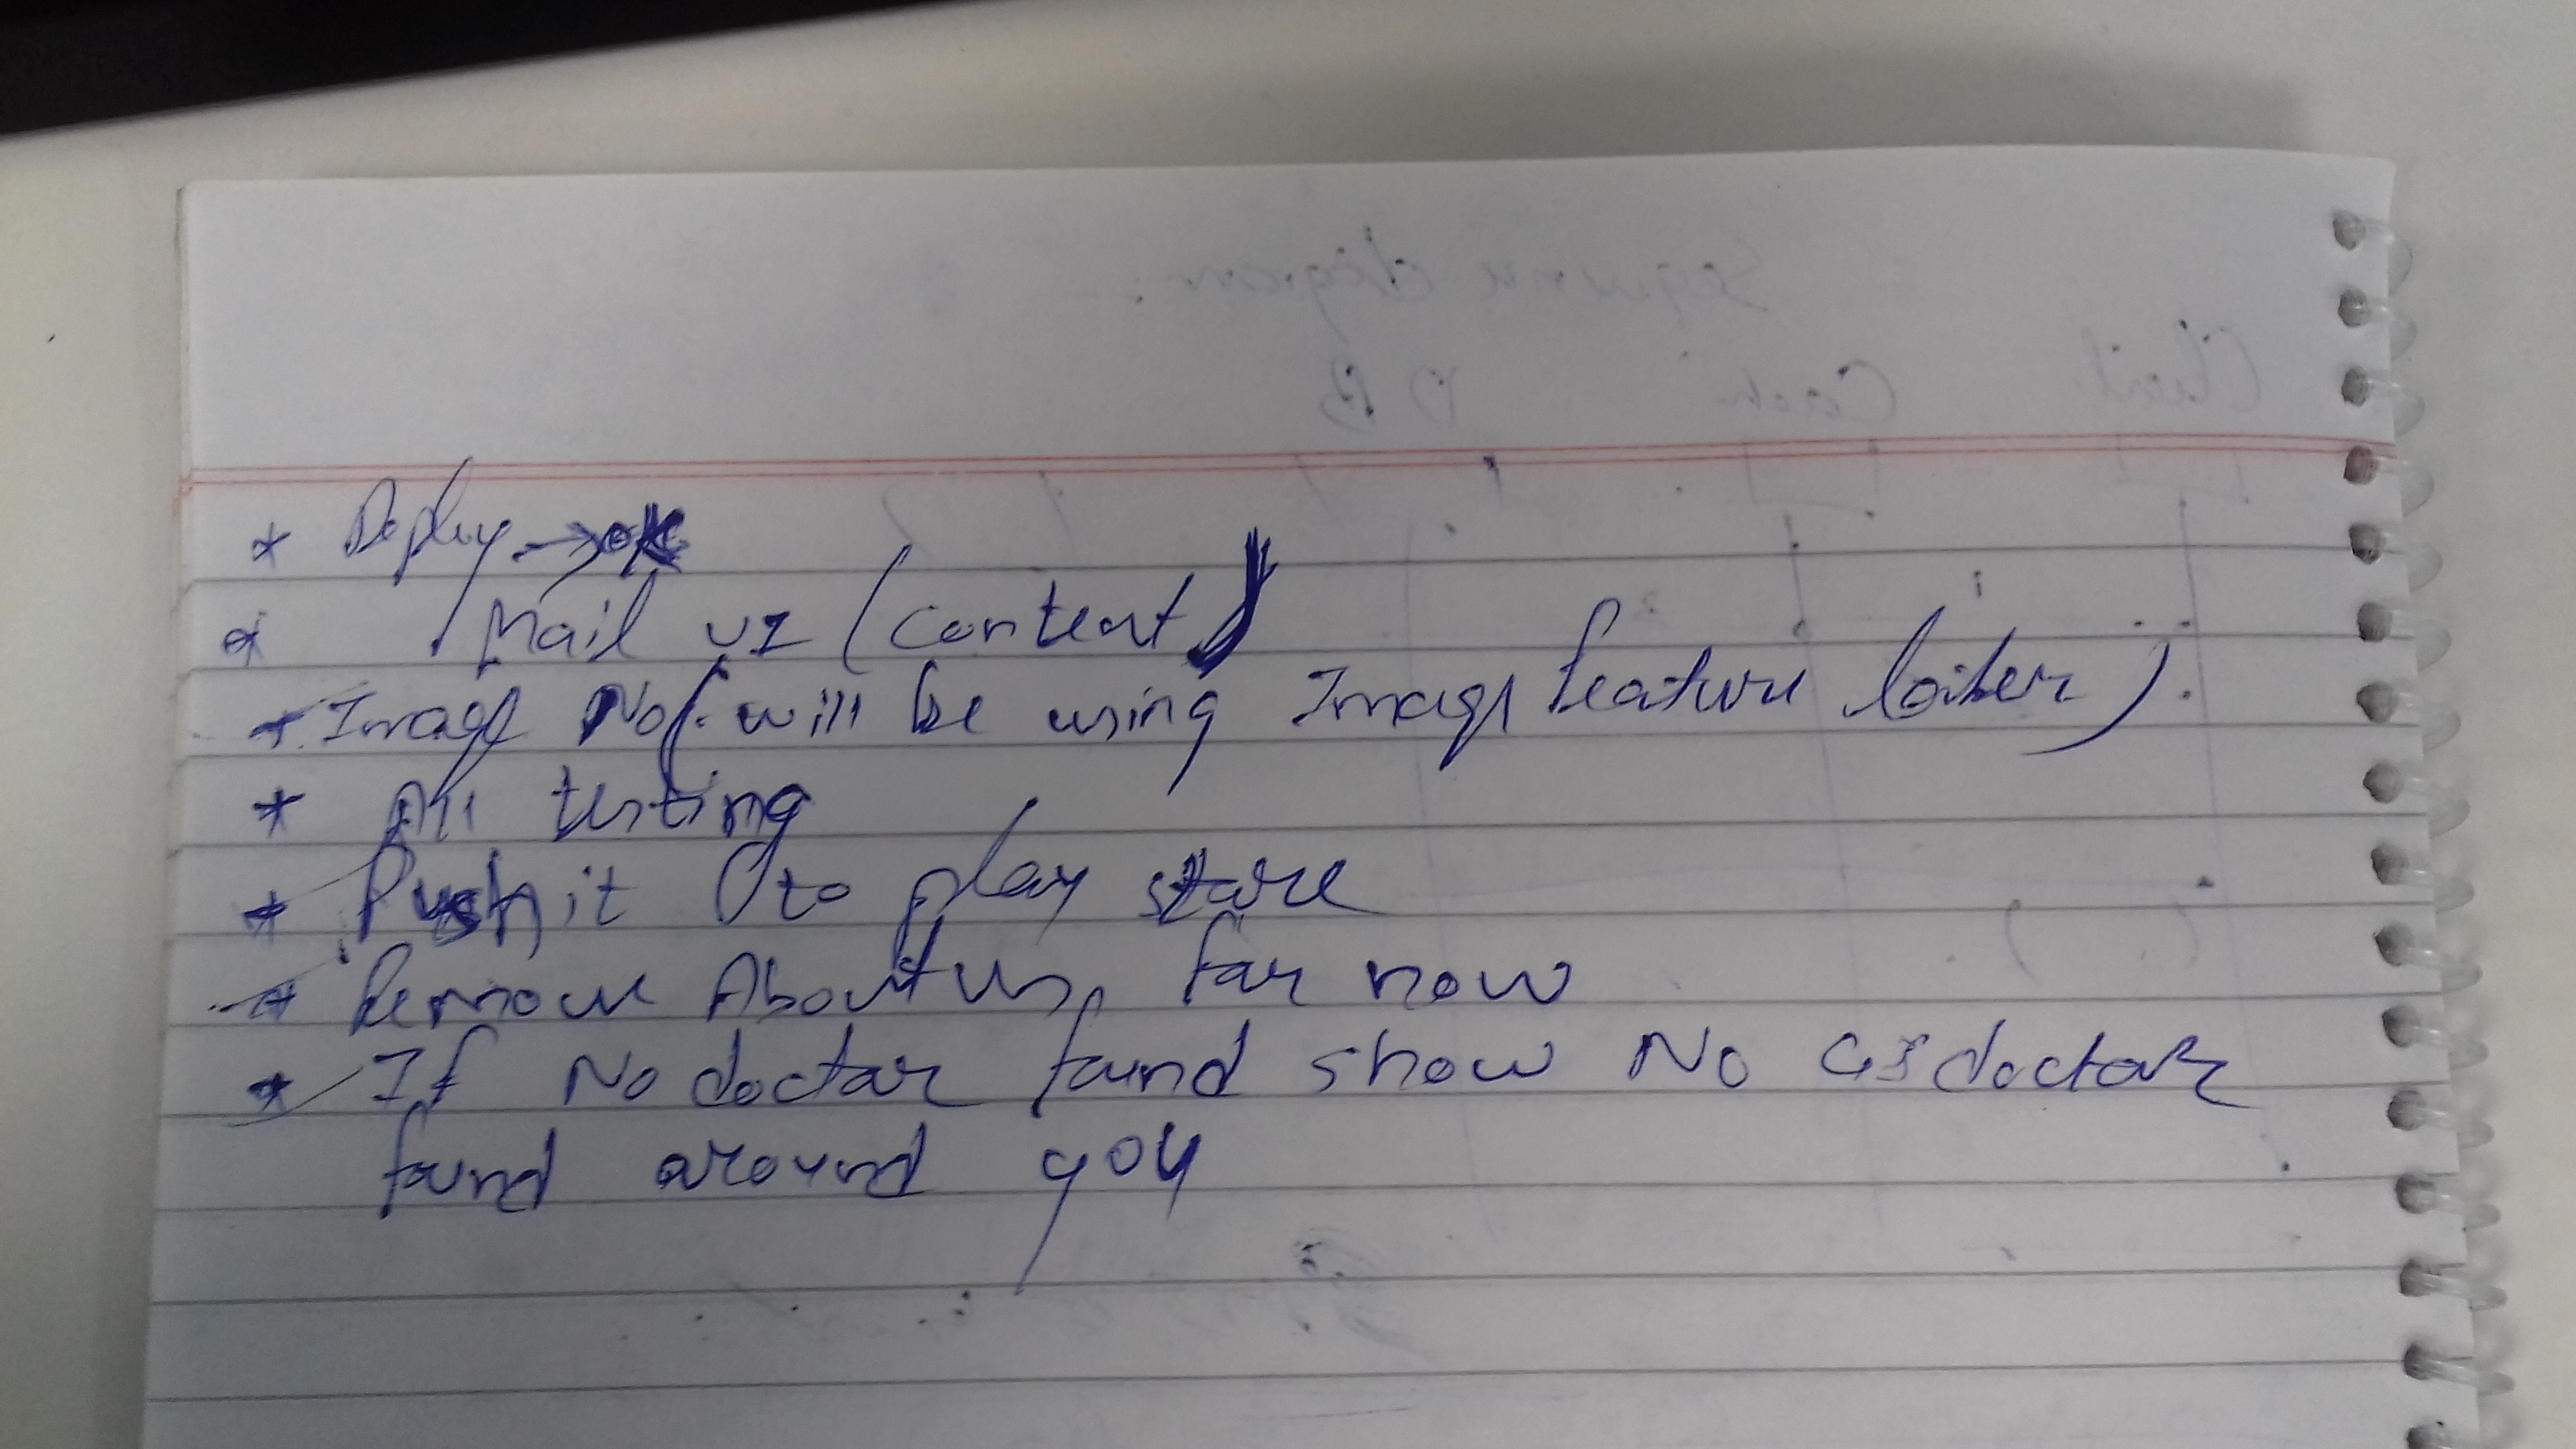 * Deploy → ok
* Mail UI (content)
* Image No (will be using Image feature later).
* All testing
* Push it to play store
* Remove About us, for now
* If No doctor found show No doctor
found around you